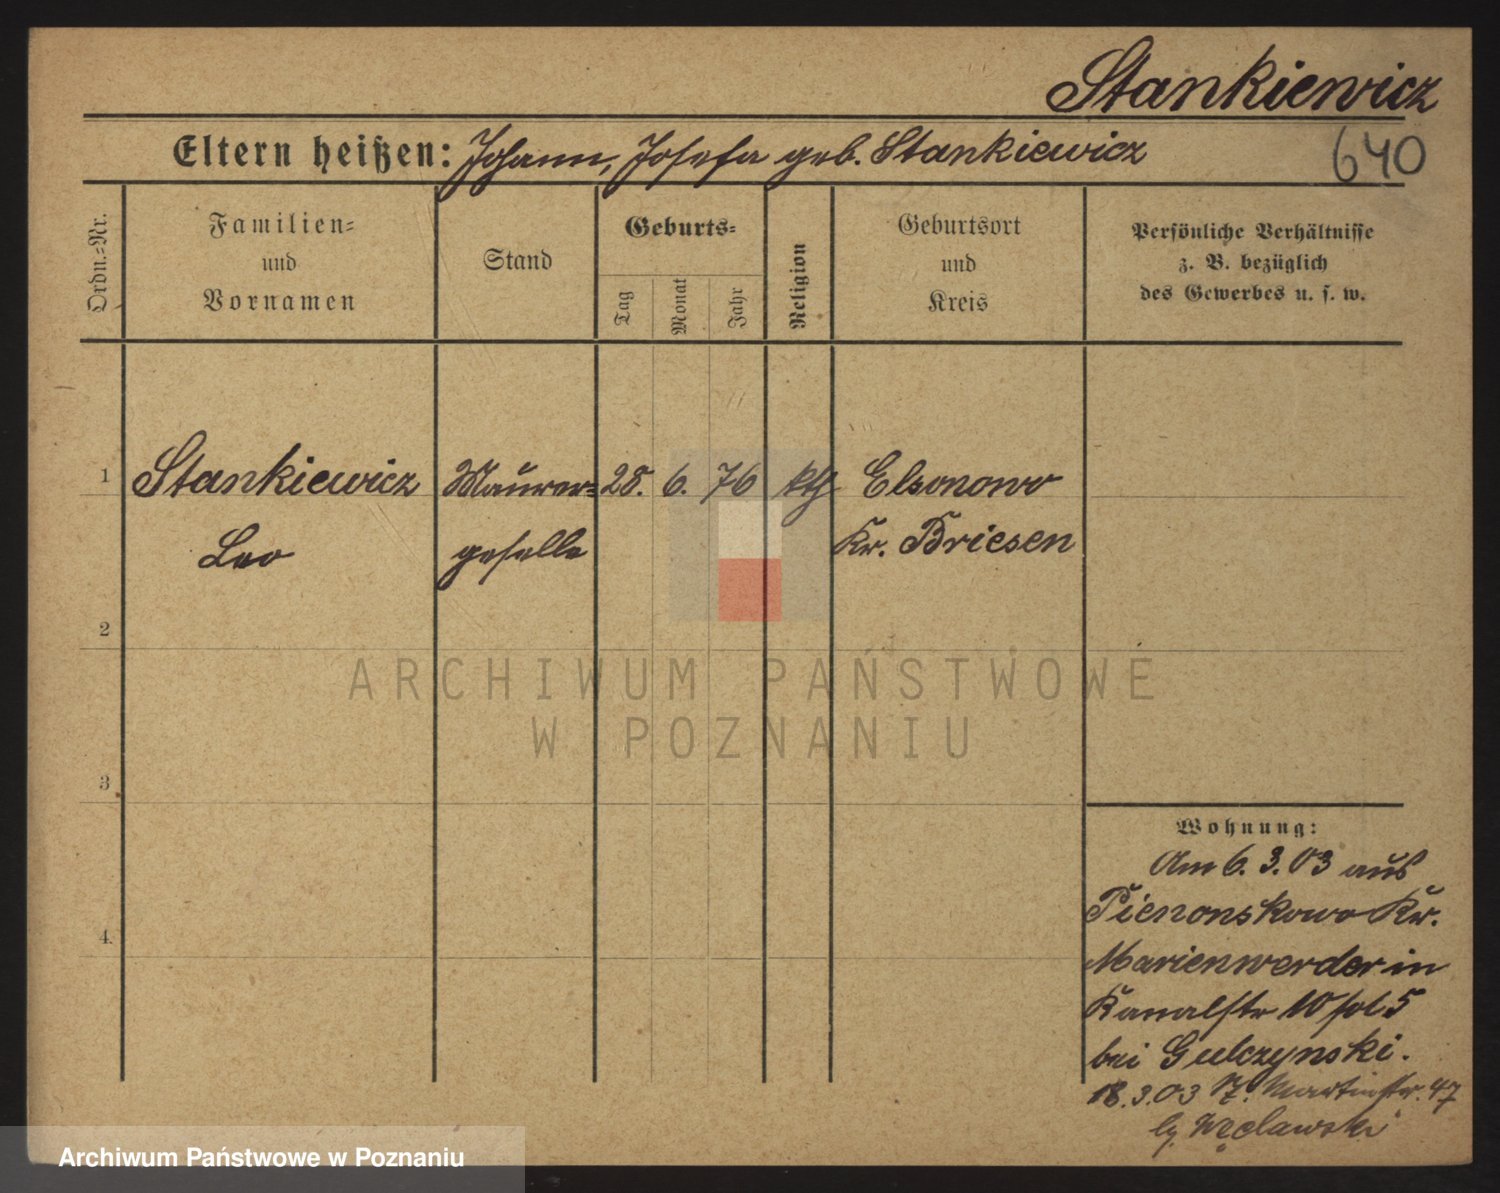 Stankiewicz
Eltern heißen: Johann, Josefa geb. Stankiewicz
640
Ordn.=Nr.
Familien=
und
Vornamen
Stand
Geburts=
Tag
Monat
Jahr
Religion
Geburtsort
und
Kreis
Persönliche Verhältnisse
z. B. bezüglich
des Gewerbes u. s. w.
1
Stankiewicz
Leo
Maurer=
geselle
25. 6. 76
kth
Elsonowo
Kr. Briesen
2
ARCHIWUM PAŃSTWOWE
W POZNANIU
3
4
Wohnung:
Am 6. 3. 03 aus
Pienonskowo Kr.
Marienwerder in
Kanalstr 10 hol 5
bei Gulczynski.
18. 3. 03 Martinstr. 47
Węclawski
Archiwum Państwowe w Poznaniu